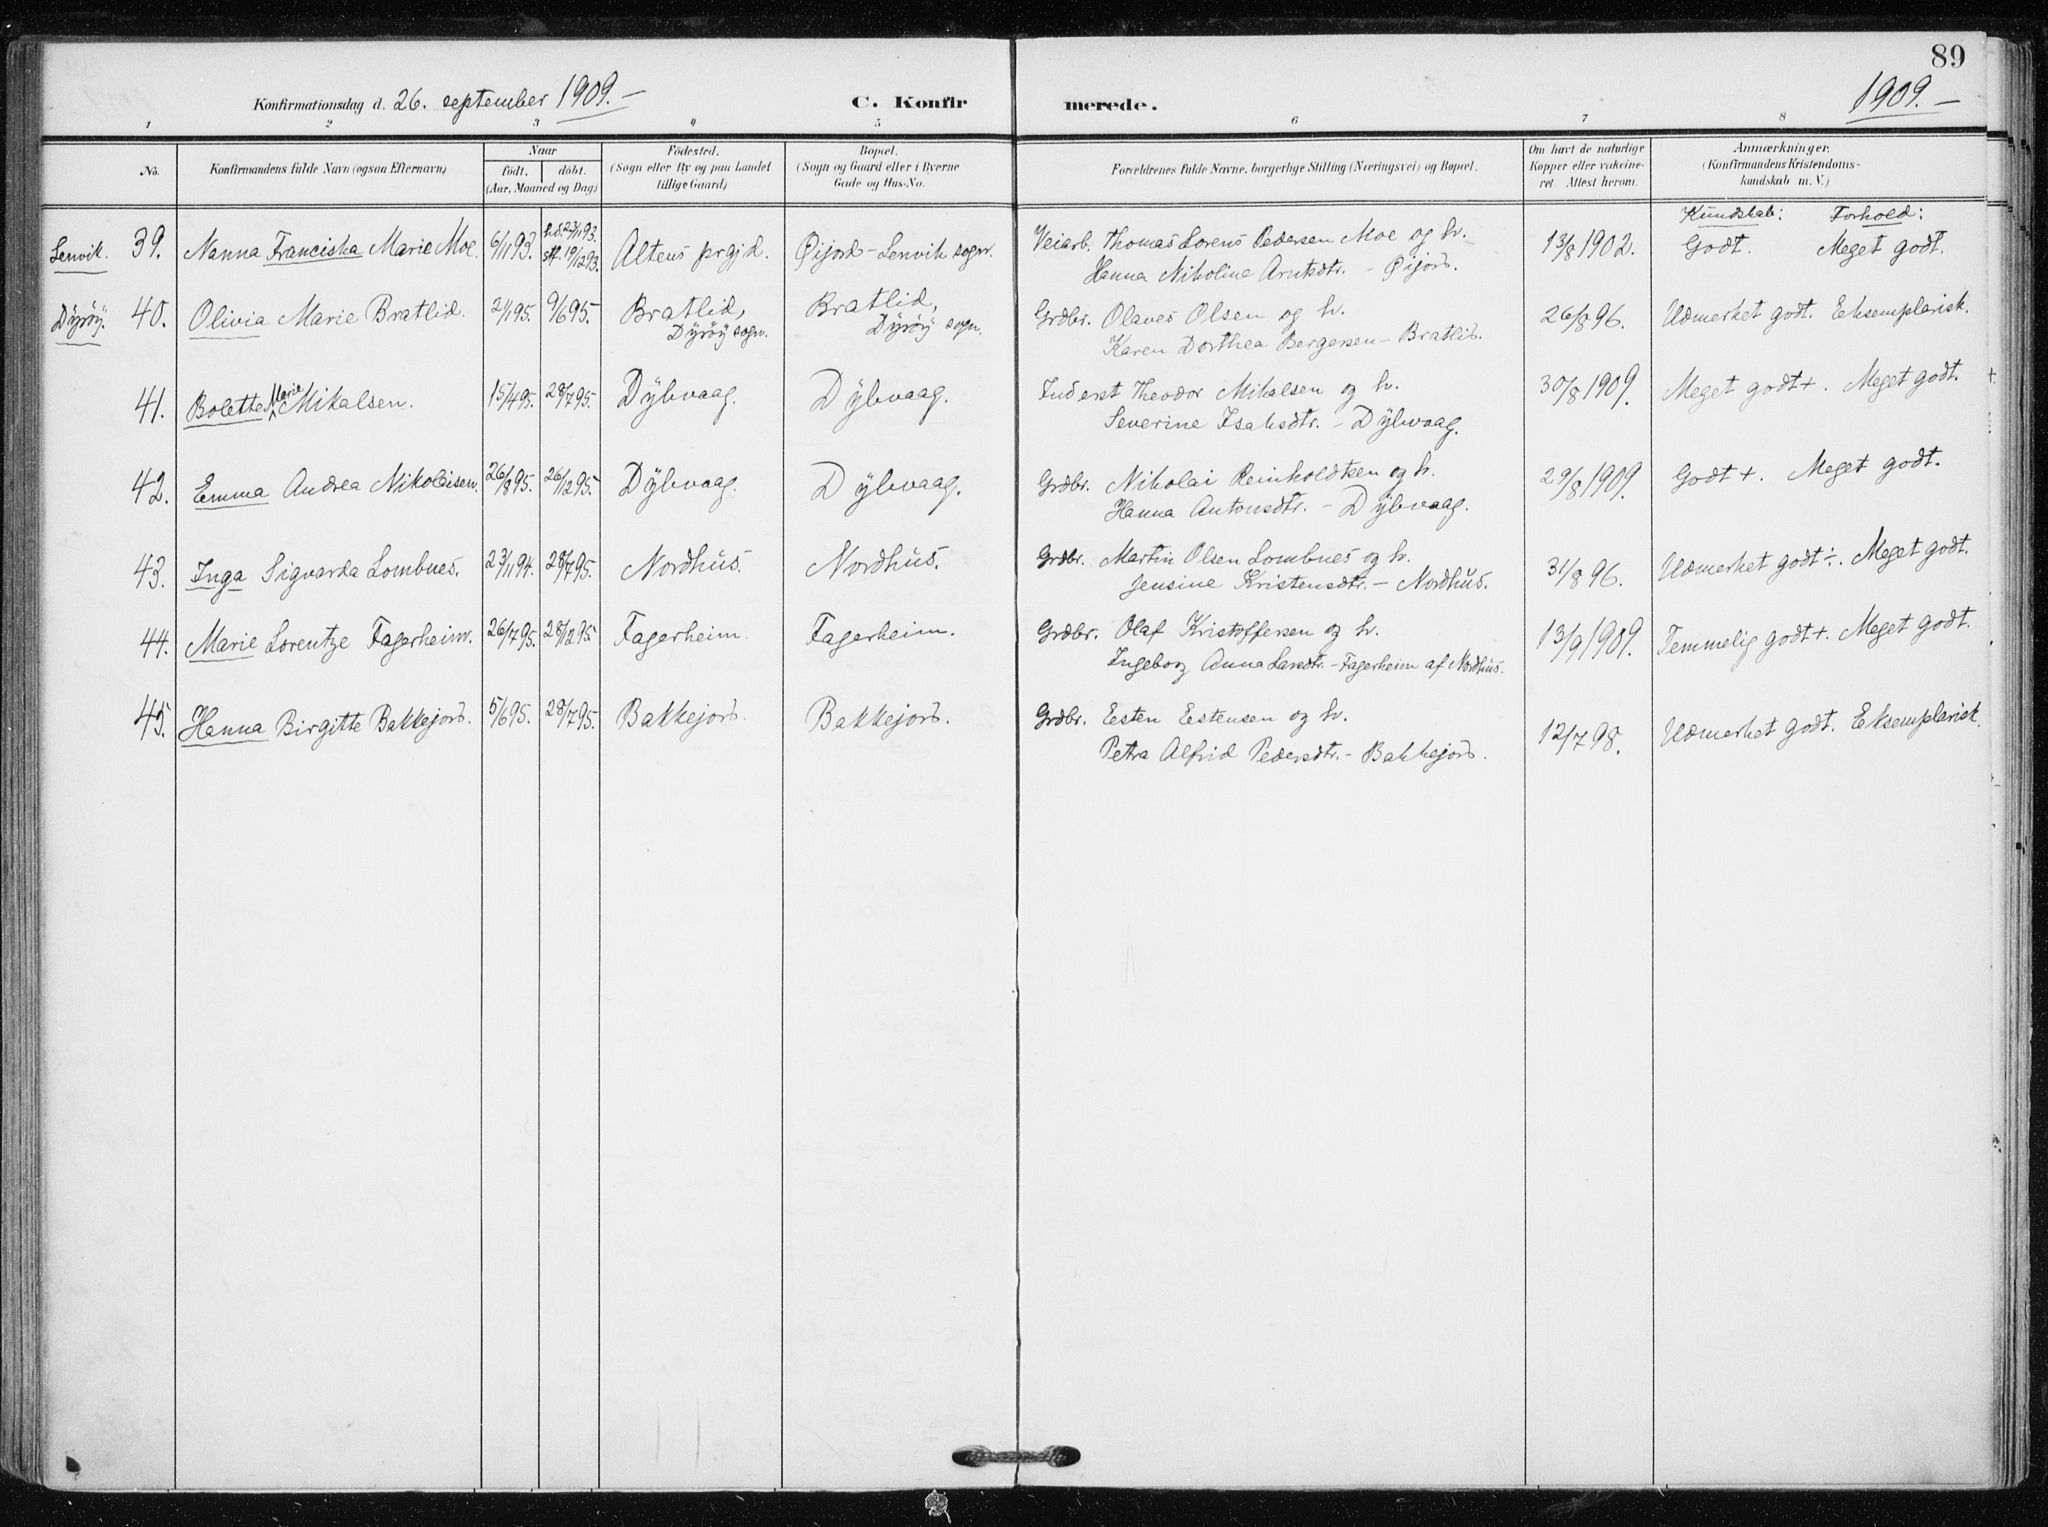 89
Konfirmationsdag d. 26. september 1909.- C. Konfir merede. 1909.-
1 2 3 4 5 6 7 8
No. Konfirmandens fulde Navn (ogsaa Efternavn) Naar Födested. Bopæl. Forældrenes fulde Navne, borgerlige Stilling (Næringsvei) og Bopæl. Om havt de naturlige Anmærkninger.
födt. döbt. (Sogn eller By og paa Landet (Sogn og Gaard eller i Byerne Kopper eller vakcine- (Konfirmandens Kristendoms-
(Aar, Maaned og Dag) tillige Gaard) Gade og Hus-No. ret. Attest herom. kundskab m. V.)
Kundskab: Forhold:
Lenvik. 39. Nanna Franciska Marie Moe. 6/1193. h.d. 23/1193. Altens prgjd. Øijord - Lenvik sogn. Veiarb. Thomas Lorens Pedersen Moe og h. 13/8 1902. Godt. Meget godt.
stf. 19/1293. Hanna Nikoline Arntsdtr. - Øijord.
Dÿrøÿ. 40. Olivia Marie Bratlid. 2/195. 9/695. Bratlid, Bratlid, Grdbr. Olaves Olsen og h. 26/8 96. Udmerket godt. Eksemplarisk.
Dÿrøÿ sogn. Dÿrøÿ sogn. Karen Dorthea Bergersen - Bratlid.
41. Bolette Marie Mikalsen. 15/495. 28/795. Dÿbvaag. Dÿbvaag. Inderst Theodor Mikalsen og h. 30/8 1909. Meget godt +. Meget godt.
Severine Isaksdtr. - Dÿbvaag.
42. Emma Andrea Nikolaisen. 26/895. 26/1295. Dÿbvaag. Dÿbvaag. Grdbr. Nikolai Reinholdtsen og h. 29/8 1909. Godt +. Meget godt.
Hanna Antonsdtr. - Dÿbvaag.
43. Inga Sigvarda Lombnes. 23/1194. 28/795. Nordhus. Nordhus. Grdbr. Martin Olsen Lombnes og h. 31/8 96. Udmerket godt ÷. Meget godt.
Jensine Kristensdtr. - Nordhus.
44. Marie Lorentze Fagerheim. 26/795. 28/1295 Fagerheim. Fagerheim. Grdbr. Olaf Kristoffersen og h. 13/9 1909. Temmelig godt +. Meget godt.
Ingeborg Anna Larsdtr. - Fagerheim af Nordhus.
45. Hanna Birgitte Bakkejord. 5/695. 28/795. Bakkejord. Bakkejord. Grdbr. Esten Estensen og h. 12/7 98. Udmerket godt. Eksemplarisk.
Petra Alfrid Pedersdtr. - Bakkejord.